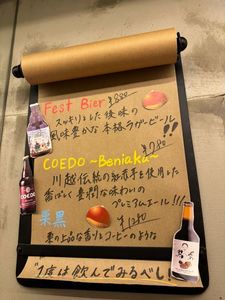 Fest Bier ¥880
スッキリとした後味の
風味豊かな本格ラガービール!!
¥780
COEDO ~Beniaka~
川越伝統の紅赤芋を使用した
香ばしく豊潤な味わいの
プレミアムエール!!!
栗黒 ¥1280
栗の上品な香りとコーヒーのような
"1度は飲んでみるべし"
COEDO